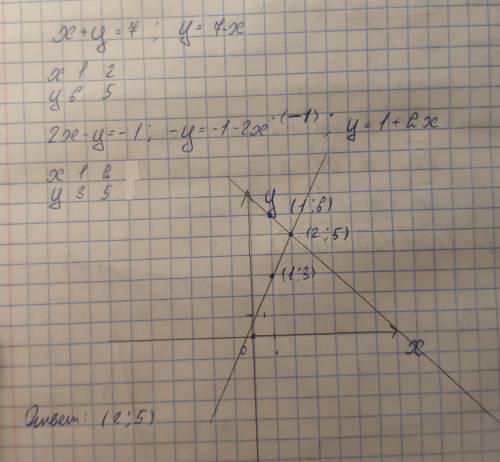 x + y = 7 ; y = 7-x
x 1 2
y 6 5
2x - y = -1 ; -y = -1 - 2x ·(-1) ; y = 1 + 2x
x 1 2
y 3 5
y (1;6)
(2;5)
(1;3)
1
0 1
x
Ответ: (2;5)